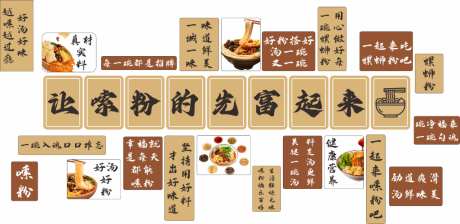 好汤好味
越嗦越过瘾
真材
实料
每一碗都是招牌
味道鲜美
一碗一味
好粉搭好
汤又一碗
用心做好每
一碗螺蛳粉
一起来吃
螺蛳粉吧
螺蛳粉
让嗦粉的先富起来
一碗入魂口口难忘
嗦粉
好汤
好粉
幸福就
是每天
都能
嗦粉
坚持用好料
才出好味道
料足汤更鲜
美味一碗
健康
营养
一起来嗦粉吧
劲道爽滑
汤鲜味美